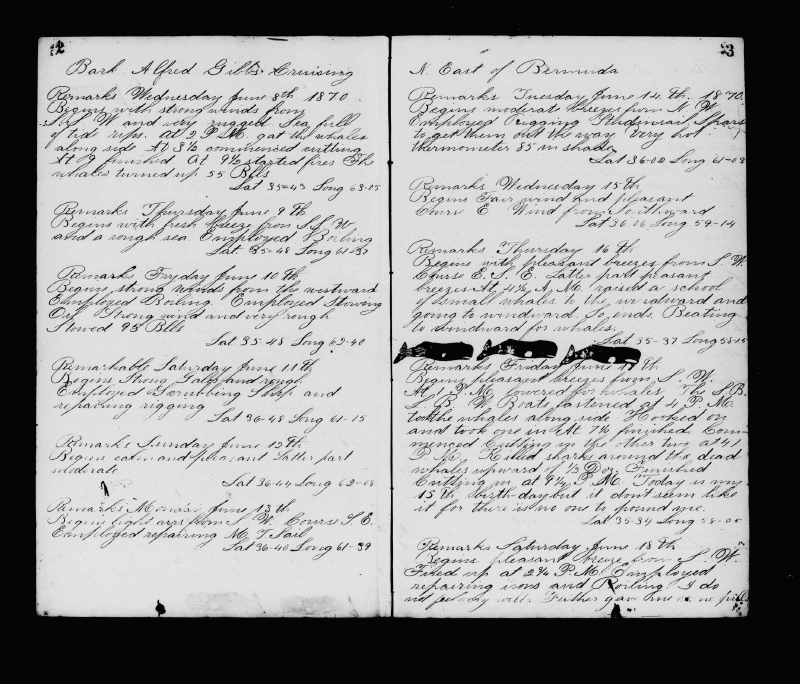 12
Bark Alfred Gibbs Cruising
Remarks Wednesday June 8th 1870
Begins with strong winds from
S.S. W and very rugged Sea full
of tid rips. At 2 P.M. got the whales
along side At 3½ commenced cutting
At 9 finished. At 9½ started fires The
whales turned up 55 Blls
Lat 35-43 Long 63-05
Remarks Thursday June 9th
Begins with fresh breeze from S.S.W
and a rough sea Employed Boiling
Lat. 35-48 Long 61-37
Remarks Fryday June 10th
Begins strong winds from the westward
Employed Boiling. Employed Stowing
Oil Strong wind and very rough
Stowed 98 Blls
Lat 35-48 Long 62-40
Remarkable Saturday June 11th
Begins Strong Gales and rough
Employed Scrubbing Ship and
repairing rigging
Lat 36-48 Long 61-15
Remarks Sunday June 12th
Begins calm and pleasant Latter part
moderate
Lat 36-44 Long 62-08
Remarks Monday June 13th
Begins light airs from S. W. Course S. E.
Employed repairing M. T. Sail
Lat 36-40 Long 61-39
23
N. East of Bermuda
Remarks Tuesday June 14th, 1870.
Begins moderat breezes from N. W.
Employed Rigging Studensail Spars
to get them out the way Very hot
thermometer 85 in shade
Lat 36-02 Long 61-03
Remarks Wednesday 15th
Begins Fair wind and pleasant
Course E Wind from Southward
Lat 36-06 Long 59-14
Remarks Thursday 16th
Begins with pleasant breezes from S. W.
Course E. S. E. Latter part pleasant
breezes At 4½ A.M. raised a school
of small whales to the windward and
going to windward. So ends. Beating
to windward for whales.
Lat 35-37 Long 58-15
Remarks Friday June 17th
Begins pleasant breezes from S. W.
At 1 P.M. lowered for whales. The S. B.
L. B. W. Boats fastened at 4 P.M.
took the whales along side Hooked on
and took one in At 7½ finished Com-
menced Cutting in the other two at 41
P.M. Killed sharks around the dead
whales upward of ½ Doz. Finished
Cutting in at 9¼ P.M. Today is my
15th, birth-day but it dont seem like
it for there is no one to pound me.
Lat 35-34 Long 58-00
Remarks Saturday June 18th
Begins pleasant breeze from S. W.
Fired up at 2¾ P.M. Employed
repairing irons and Boiling I do
not feel very well. Father gave me some pills